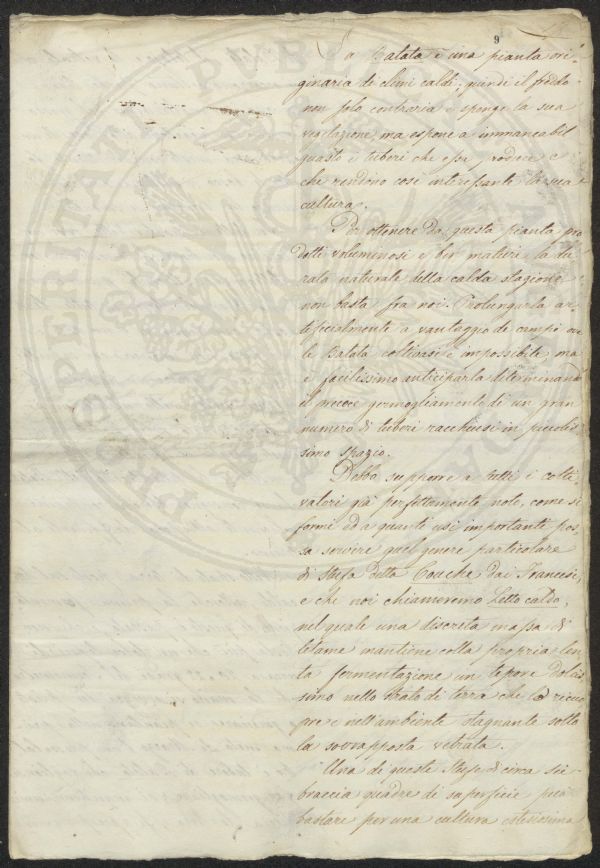 9
La Batata è una pianta ori-
ginaria di climi caldi; quindi il freddo
non solo contraria e spenge la sua
vegetazione, ma espone a immancabil
guasto i tuberi che essa produce e
che rendono così interessante la sua
cultura.
Per ottenere da questa pianta pro
dotti voluminosi e ben maturi la du
rata naturale della calda stagione
non basta fra noi. Prolungarla ar-
tificialmente a vantaggio di campi ove
le Batata coltivasi è impossibile, ma
è facilissimo anticiparla determinando
il precoce germogliamento di un gran
numero di tuberi racchiusi in piccolis
simo spazio.
Debbo supporre a tutti i colti-
vatori già perfettamente noto, come si
formi ed a quanti usi importante pos
sa servire quel genere particolare
di stufa detta Couche dai Francesi,
e che noi chiameremo Letto caldo,
nel quale una discreta massa di
letame mantiene colla propria len
ta fermentazione un tepore dolcis
simo nello strato di terra che lo ricuo
pre e nell'ambiente stagnante sotto
la sovrapposta vetrata.
Una di queste stufe di circa sei
braccia quadre di superficie può
bastare per una cultura estesissima
PROSPERITATI PUBLICAE